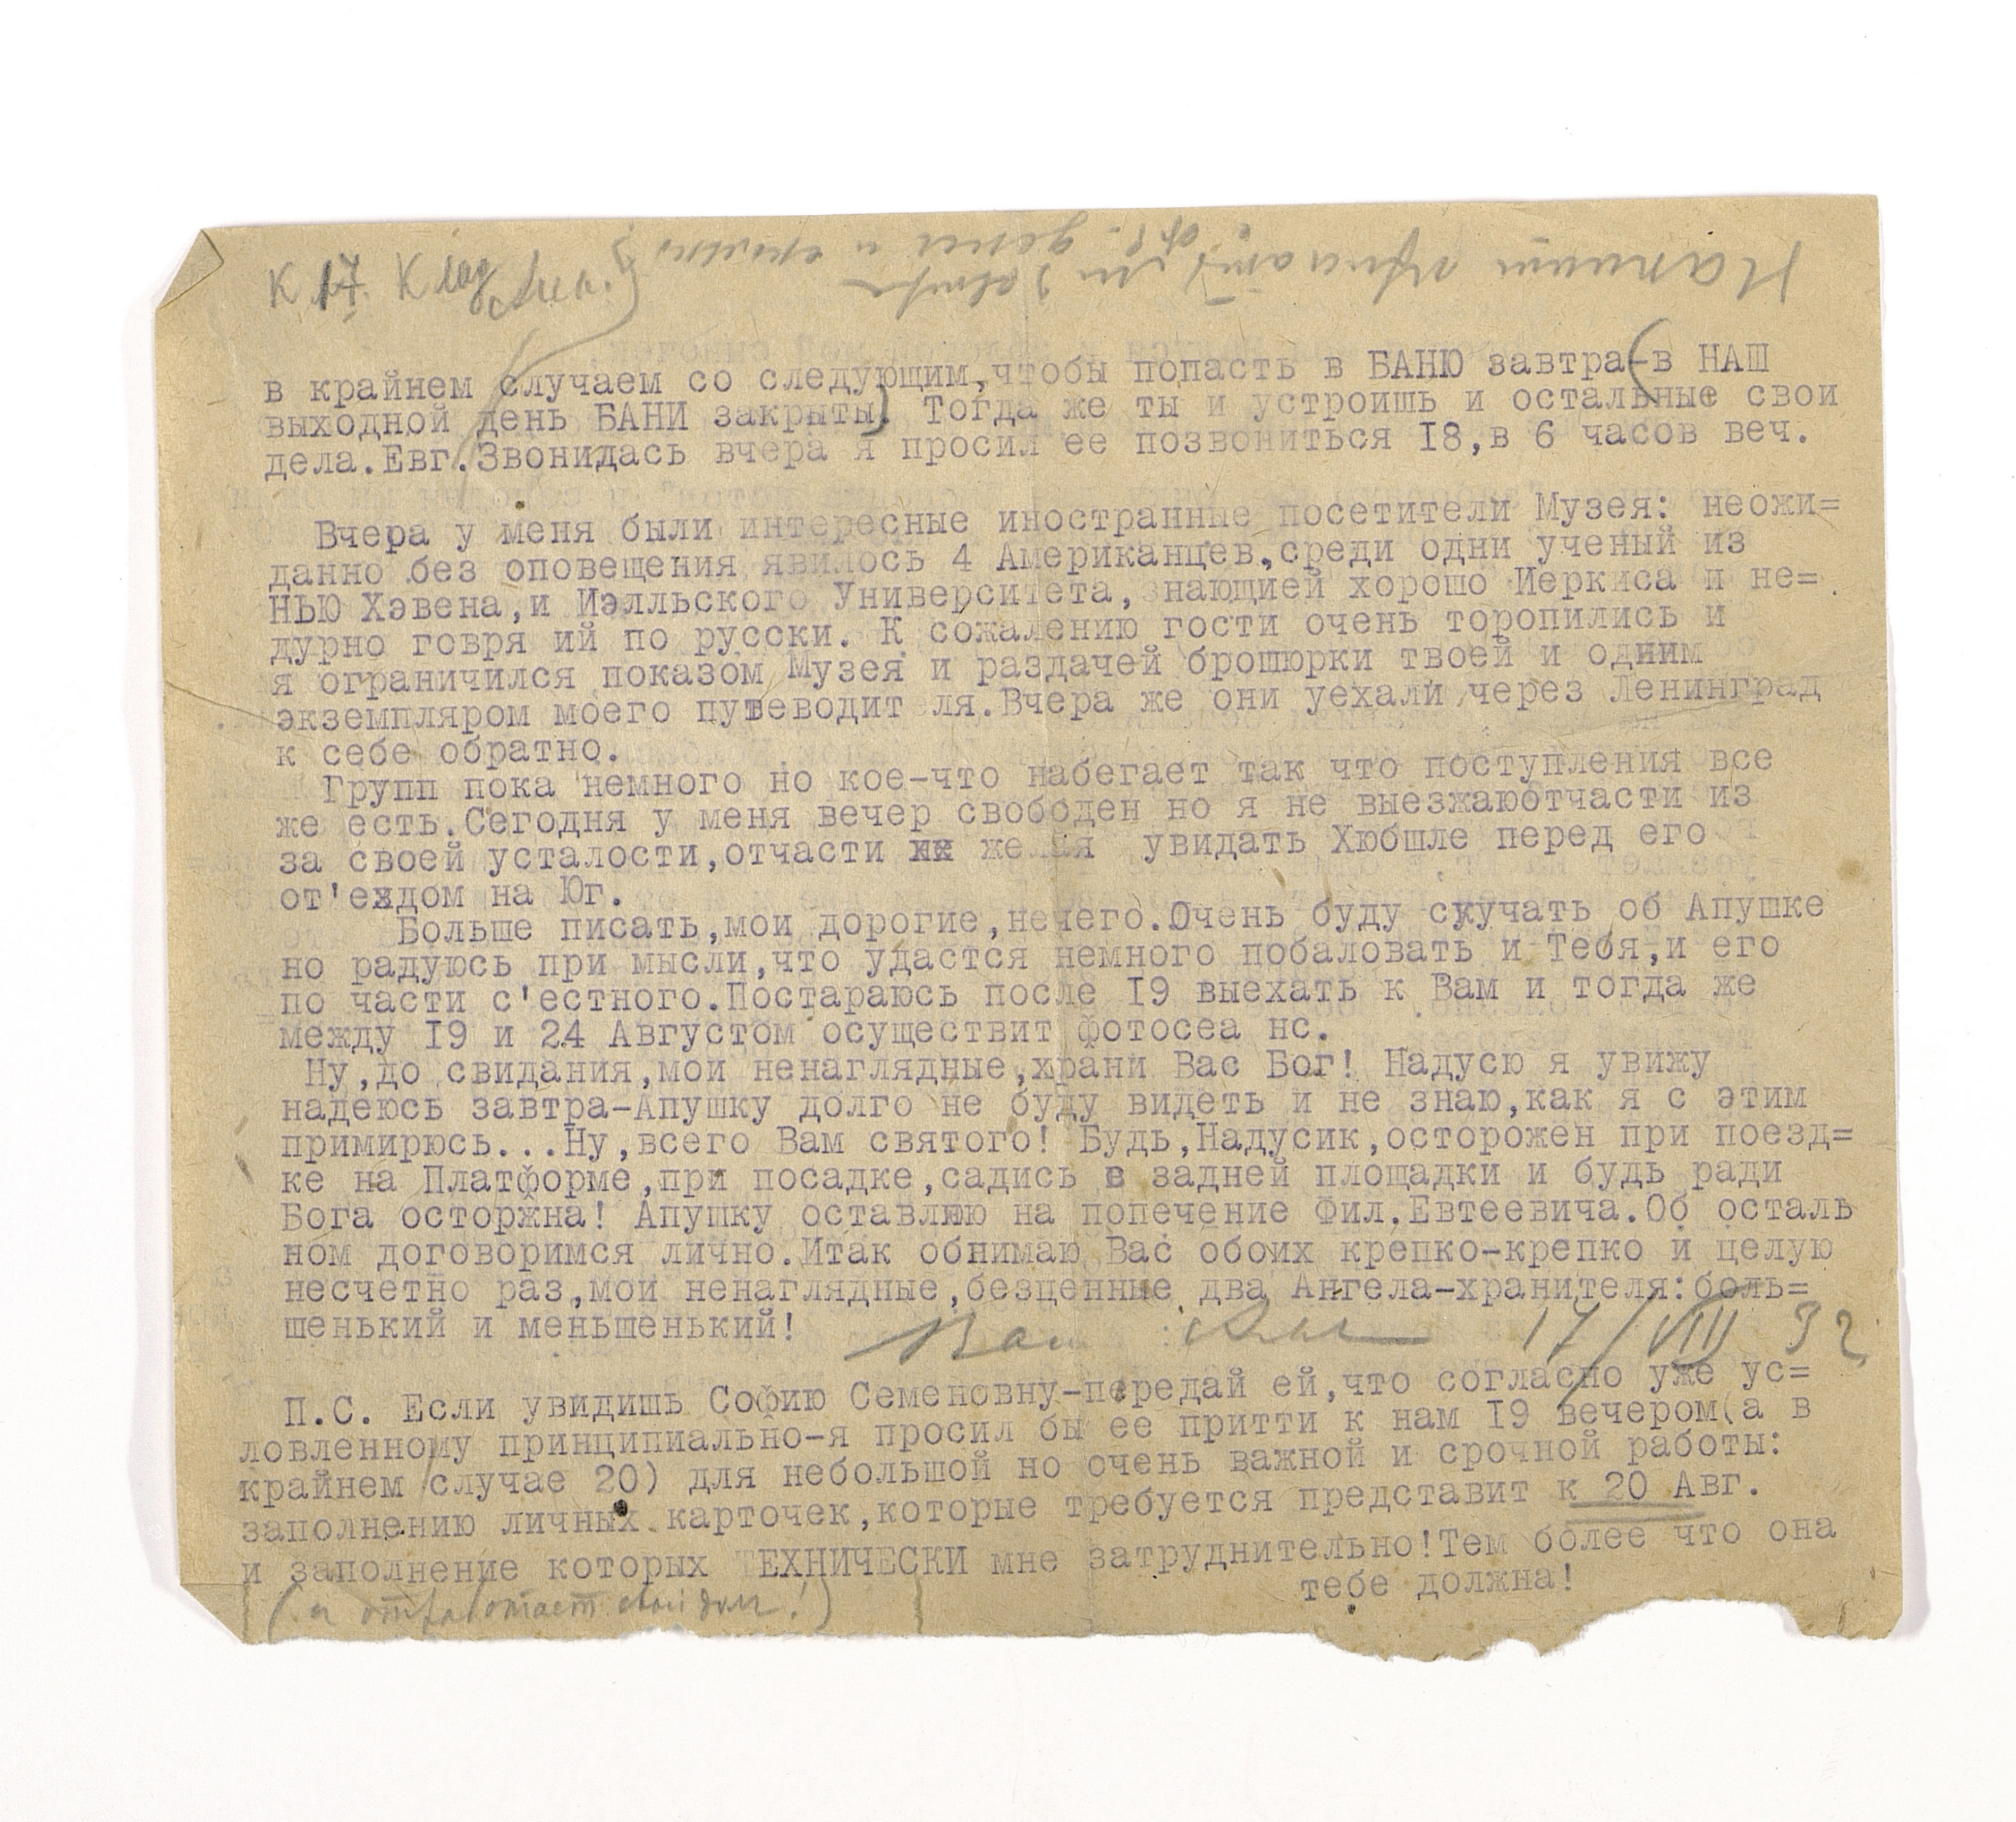 К 17. К
в крайнем случаем со следующим,чтобы попасть в БАНЮ завтра-(в НАШ
выходной день БАНИ закрыты). Тогда же ты и устроишь и остальные свои
дела.Евг.Звонидась вчера я просил ее позвониться I8,в 6 часов веч.
Вчера у меня были интересные иностранные посетители Музея: неожи=
данно без оповещения явилось 4 Американцев,среди одни ученый из
НЬЮ Хэвена,и Иэлльского Университета, знающией хорошо Иеркиса и не=
дурно говря ий по русски. К сожалению гости очень торопились и
я ограничился показом Музея и раздачей брошюрки твоей и одним
экземпляром моего путеводит ля.Вчера же они уехали через Ленинград
к себе обратно.
Групп пока немного но кое-что набегает так что поступления все
же есть.Сегодня у меня вечер свободен но я не выезжаюотчасти из
за своей усталости,отчасти же ая увидать Хюбшле перед его
от'ездом на Юг.
Больше писать,мои дорогие,нечего.Очень буду скучать об Апушке
но радуюсь при мысли,что удастся немного побаловать и Тебя,и его
по части с'естного.Постараюсь после I9 выехать к Вам и тогда же
между I9 и 24 Августом осуществит фотосеа нс.
Ну,до свидания,мои ненаглядные,храни Вас Бог! Надусю я увижу
надеюсь завтра-Апушку долго не буду видеть и не знаю,как я с этим
примирюсь...Ну,всего Вам святого! Будь,Надусик,осторожен при поезд=
ке на Платформе,при посадке,садись с задней площадки и будь ради
Бога осторжна! Апушку оставляю на попечение Фил.Евтеевича.Об осталь
ном договоримся лично.Итак обнимаю Вас обоих крепко-крепко и целую
несчетно раз,мои ненаглядные,безценные два Ангела-хранителя:боль=
шенький и меньшенький! Ваш 17/VIII 32
П.С. Если увидишь Софию Семеновну-передай ей,что согласно уже ус=
ловленному принципиально-я просил бы ее притти к нам I9 вечером(а в
крайнем случае 20) для небольшой но очень важной и срочной работы:
заполнению личных карточек,которые требуется представит к 20 Авг.
и заполнение которых ТЕХНИЧЕСКИ мне затруднительно!Тем более что она
тебе должна!
(и отработает свой долг!)